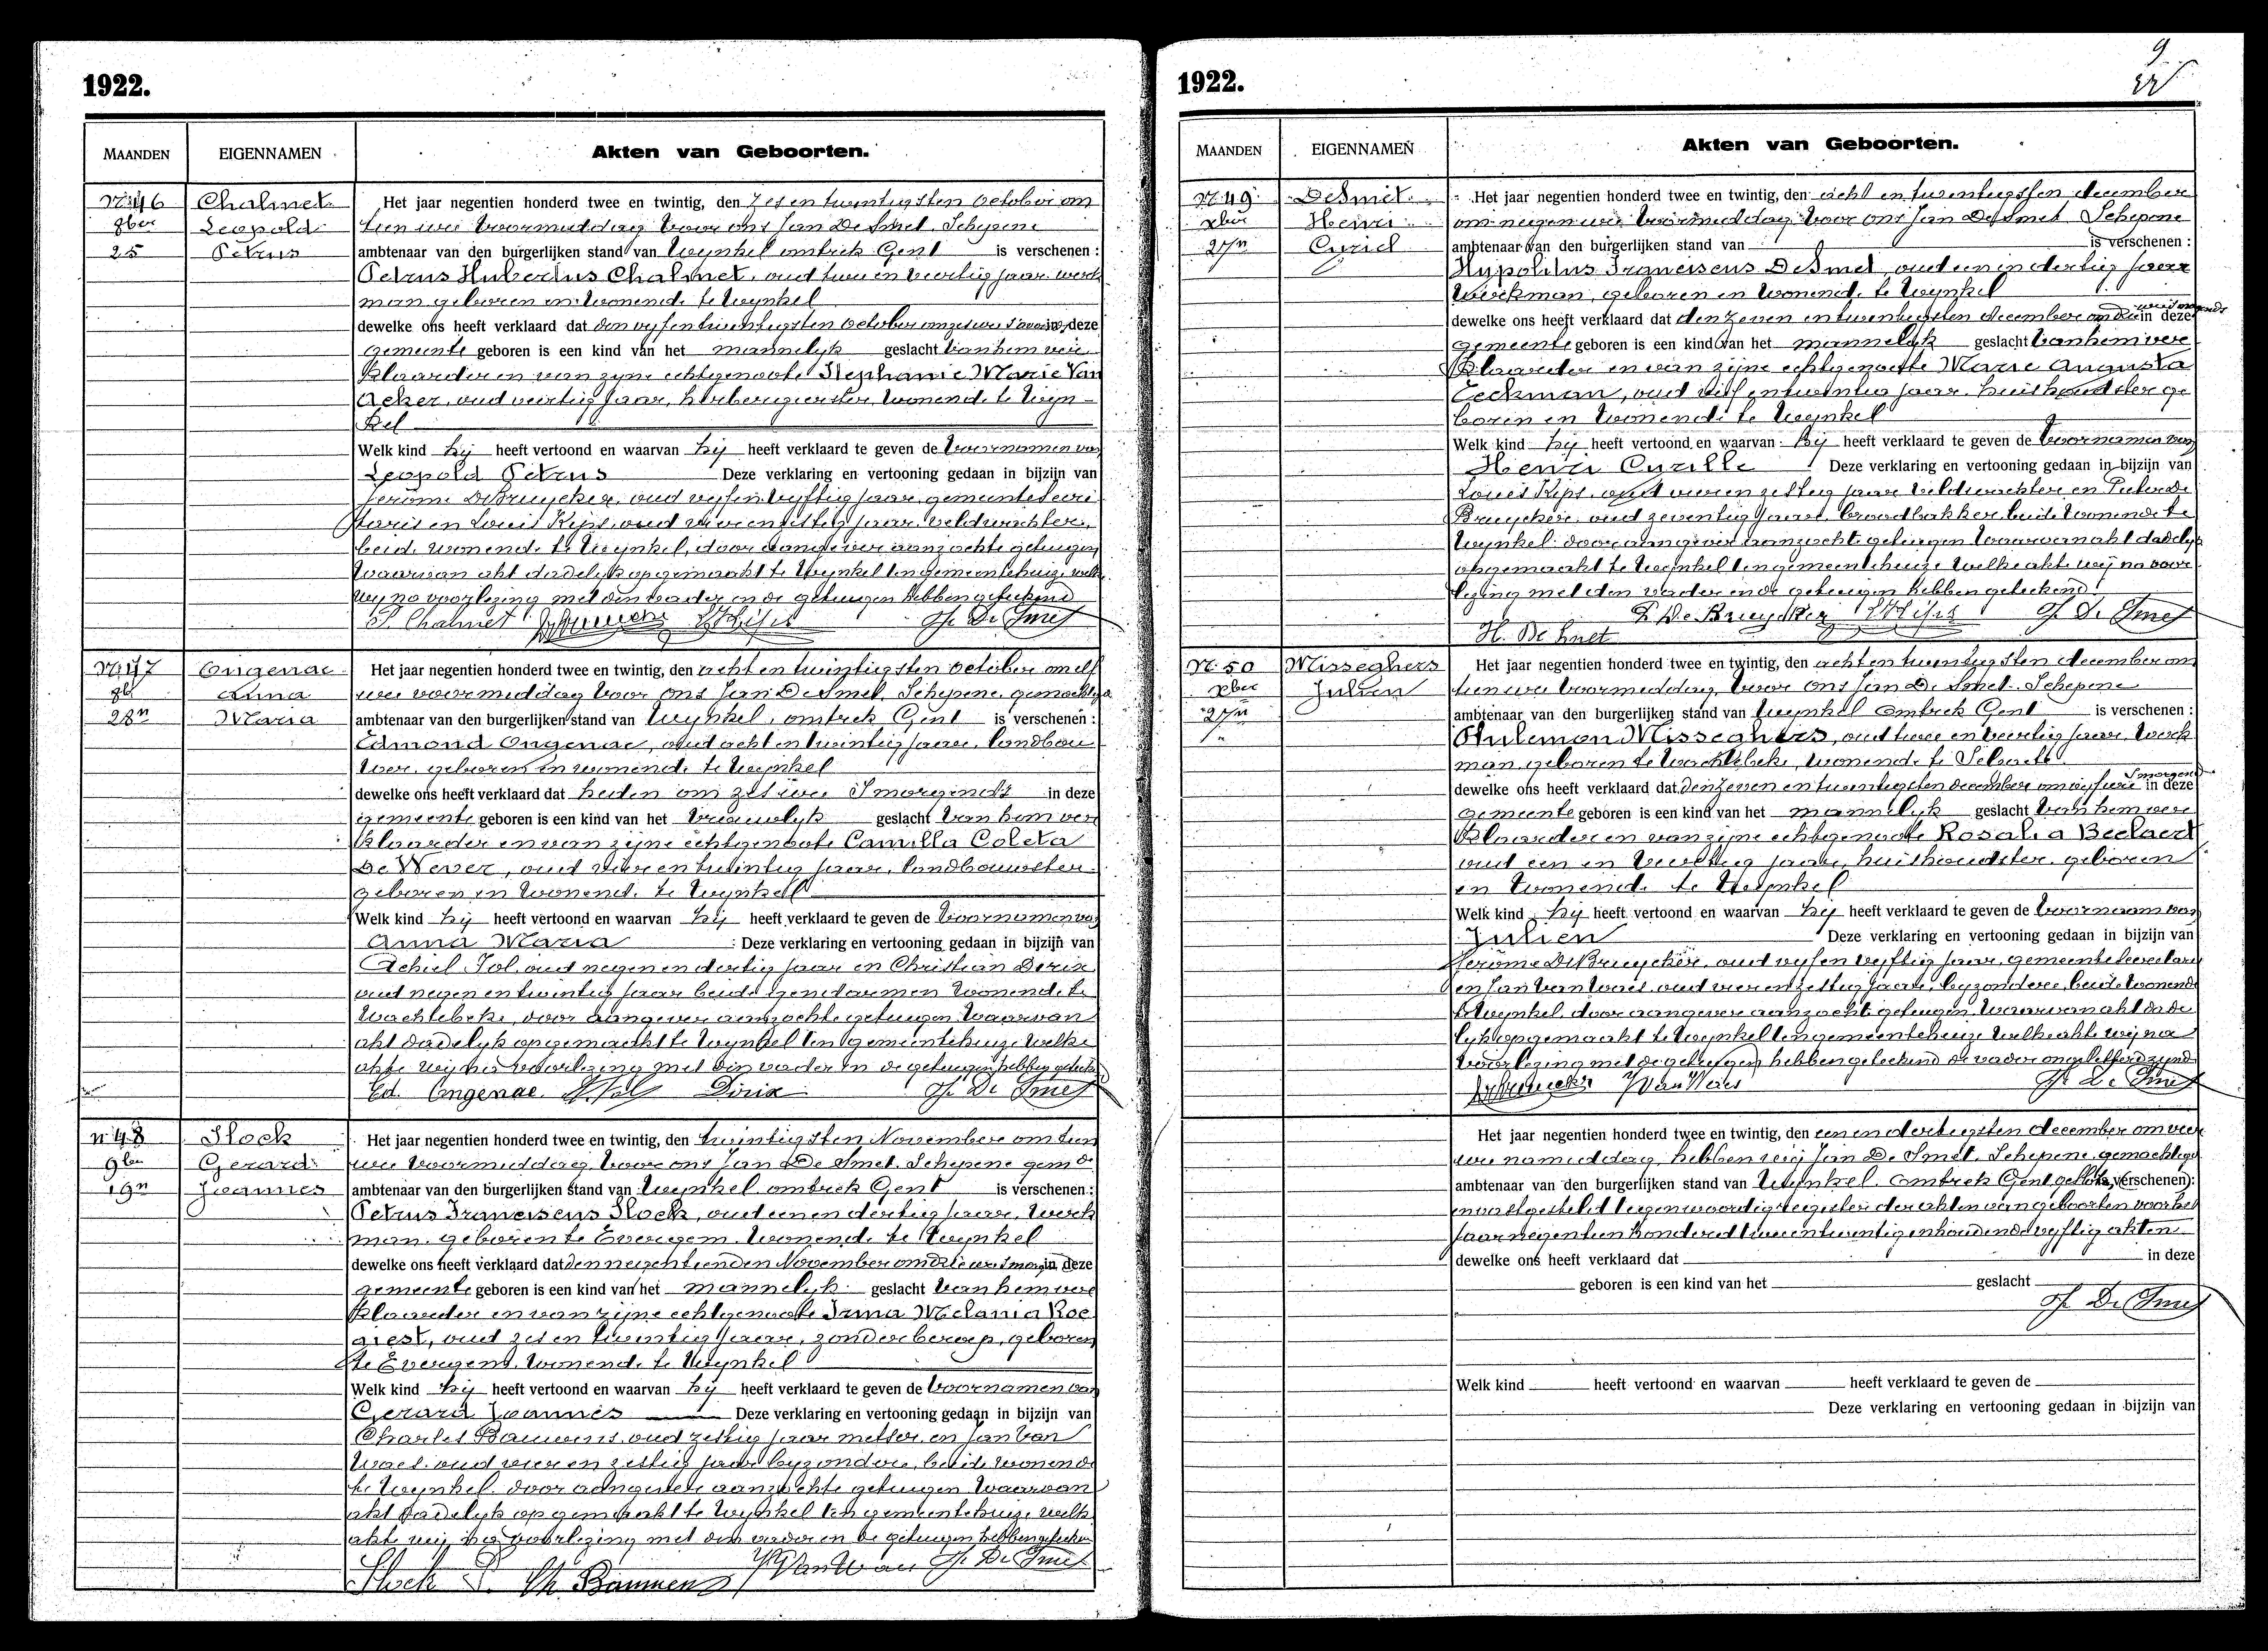 1922.
MAANDEN EIGENNAMEN Akten van Geboorten.
Nr 46 Chalmet Het jaar negentien honderd twee en twintig, den zes en twintigsten October om
8ber Leopold tien ure voormiddag voor ons Jan De Smet, Schepene
25 Petrus ambtenaar van den burgerlijken stand van Wynkel omtrek Gent is verschenen :
Petrus Hubertus Chalmet, oud twee en veertig jaar werk
man geboren en wonende te Wynkel
dewelke ons heeft verklaard dat den vyfentwintigsten October om zes ure in deze
gemeente geboren is een kind van het mannelyk geslacht van hem ver
klaarder en van zyne echtgenoote Stephanie Marie Van
Acker, oud veertig jaar, herbergierster, wonende te Wyn-
kel
Welk kind hij heeft vertoond en waarvan hij heeft verklaard te geven de voornamen van
Leopold Petrus Deze verklaring en vertooning gedaan in bijzijn van
Jerome DeBruycker, oud vyfenvyftig jaar, gemeentesecre
taris en Louis Kips, oud vierenzestig jaar, veldwachter,
beide wonende te Wynkel, door aangever aanzochte getuigen
waarvan akt dadelyk opgemaakt te Wynkel ten gemeentehuize welke
wy na voorlezing met den vader en de getuigen hebben geteekend
P. Chalmet J. De Smet
Nr 47 Ongenae Het jaar negentien honderd twee en twintig, den acht en twintigsten October om elf
8b Anna ure voormiddag voor ons Jan De Smet, Schepene, gemachtigd
28n Maria ambtenaar van den burgerlijken stand van Wynkel, omtrek Gent is verschenen :
Edmond Ongenae, oud acht en twintig jaar, landbou
wer, geboren en wonende te Wynkel
dewelke ons heeft verklaard dat heden om zes ure Smorgends in deze
gemeente geboren is een kind van het vrouwelyk geslacht van hem ver
klaarder en van zyne echtgenoote Camilla Coleta
De Wever, oud vier en twintig jaar, landbouwster
geboren en wonende te Wynkel
Welk kind hij heeft vertoond en waarvan hij heeft verklaard te geven de voornamen van
Anna Maria Deze verklaring en vertooning gedaan in bijzijn van
Achiel Sol, oud negen en dertig jaar en Christian Dirix
oud negen en twintig jaar beide gendarmen wonende te
Wachtebeke, door aangever aanzochte getuigen waarvan
akt dadelyk opgemaakt te Wynkel ten gemeentehuize welke
akte wij na voorlezing met den vader en de getuigen hebben geteekend
Ed. Ongenae Sol Dirix J. De Smet
n 48 Slock Het jaar negentien honderd twee en twintig, den twintigsten November om tien
9ber Gerard ure voormiddag, voor ons Jan De Smet, Schepene gemd
19n Joannes ambtenaar van den burgerlijken stand van Wynkel omtrek Gent is verschenen :
Petrus Franciscus Slock, oud een en dertig jaar, werk
man geboren te Evergem, wonende te Wynkel
dewelke ons heeft verklaard dat den negentienden November om drie ure smorg in deze
gemeente geboren is een kind van het mannelyk geslacht van hem ver
klaarder en van zyne echtgenoote Irma Melania Roe
giest, oud zes en twintig jaar, zonder beroep, geboren
te Evergem, wonende te Wynkel
Welk kind hij heeft vertoond en waarvan hij heeft verklaard te geven de voornamen van
Gerard Joannes Deze verklaring en vertooning gedaan in bijzijn van
Charles Bauwens, oud zestig jaar metser en Jan Van
Waes, oud vier en zestig jaar byzondere, beide wonende
te Wynkel door aangever aanzochte getuigen waarvan
akt dadelyk opgemaakt te Wynkel ten gemeentehuize welke
akte wij na voorlezing met den vader en de getuigen hebben geteekend
Slock P. Ch. Bauwens J. De Smet
1922.
9
MAANDEN EIGENNAMEN Akten van Geboorten.
Nr 49 DeSmet Het jaar negentien honderd twee en twintig, den acht en twintigsten december
xber Henri om negen ure voormiddag voor ons Jan De Smet Schepene
27n Cyriel ambtenaar van den burgerlijken stand van is verschenen :
Hypolitus Franciscus DeSmet, oud een en dertig jaar
werkman, geboren en wonende te Wynkel
dewelke ons heeft verklaard dat den zeven en twintigsten december om in deze
gemeente geboren is een kind van het mannelyk geslacht van hem ver
klaarder en van zijne echtgenoote Marie Augusta
Eeckman, oud vijf en twintig jaar, huishoudster ge
boren en wonende te Wynkel
Welk kind hij heeft vertoond en waarvan hij heeft verklaard te geven de voornamen van
Henri Cyrille Deze verklaring en vertooning gedaan in bijzijn van
Louis Kips, oud vieren zestig jaar veldwachter en Pieter De
Bruycker, oud zeventig jaar, broodbakker, beide wonende te
Wynkel door aangever aanzochte getuigen waarvan akt dadelyk
opgemaakt te Wynkel ten gemeentehuize welke akte wij na voor
lezing met den vader en de getuigen hebben geteekend
P. De Bruycker J. De Smet
H. De Smet
Nr 50 Misseghers Het jaar negentien honderd twee en twintig, den acht en twintigsten december om
xber Julien tien ure voormiddag, voor ons Jan De Smet, Schepene
27n ambtenaar van den burgerlijken stand van Wynkel omtrek Gent is verschenen :
Philemon Misseghers, oud twee en veertig jaar, werk
man, geboren te Wachtebeke, wonende te Selzaete
Smorgends
dewelke ons heeft verklaard dat den zeven en twintigsten december om vyf ure in deze
gemeente geboren is een kind van het mannelyk geslacht van hem ver
klaarder en van zijne echtgenoote Rosalia Beelaert
oud een en veertig jaar, huishoudster, geboren
en wonende te Wynkel
Welk kind hij heeft vertoond en waarvan hij heeft verklaard te geven de voornaam van
Julien Deze verklaring en vertooning gedaan in bijzijn van
Jerome DeBruycker, oud vyf en vyftig jaar, gemeentesecretaris
en Jan Van Waes, oud vier en zestig jaar, byzondere, beide wonende
te Wynkel, door aangever aanzochte getuigen, waarvan akt dade
lyk opgemaakt te Wynkel ten gemeentehuize welke akte wij na
voorlezing met de getuigen hebben geteekend de vader ongeletterd zynde
J Van Waes J. De Smet
Het jaar negentien honderd twee en twintig, den een en dertigsten december om vier
ure namiddag, hebben wij Jan De Smet, Schepene, gemachtigd
ambtenaar van den burgerlijken stand van Wynkel, omtrek Gent gesloten verschenen):
en vastgesteld tegenwoordig register der akten van geboorten voor het
jaar negentien honderd twee en twintig inhoudende vyftig akten
dewelke ons heeft verklaard dat in deze
geboren is een kind van het geslacht
J. De Smet
Welk kind heeft vertoond en waarvan heeft verklaard te geven de
Deze verklaring en vertooning gedaan in bijzijn van